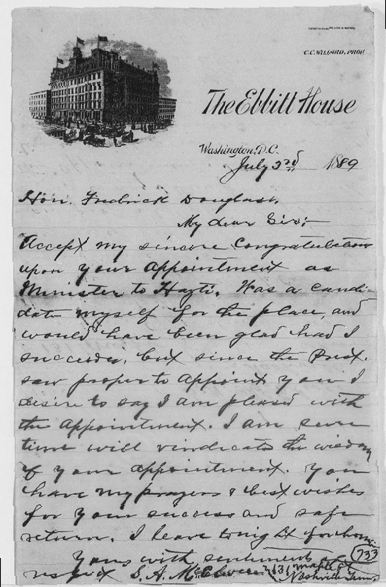 C. C. WILLARD, PROP.
The Ebbitt House
Washington, D.C.
July 3rd 1889
Hon. Fredrick Douglass,
My dear Sir;
Accept my sincere Congratulations
upon your appointment as
Minister to Hayti. Was a candi-
date myself for the place, and
would have been glad had I
succeeded, but since the Prest.
saw proper to appoint you I
desire to say I am pleased with
the appointment. I am sure
time will vindicate the wisdom
of your appointment. You
have my prayers & best wishes
for your success and safe
return. I leave tonight for home
733
Yours with sentiments of
respect S. A. McElwee
Nashville Tenn